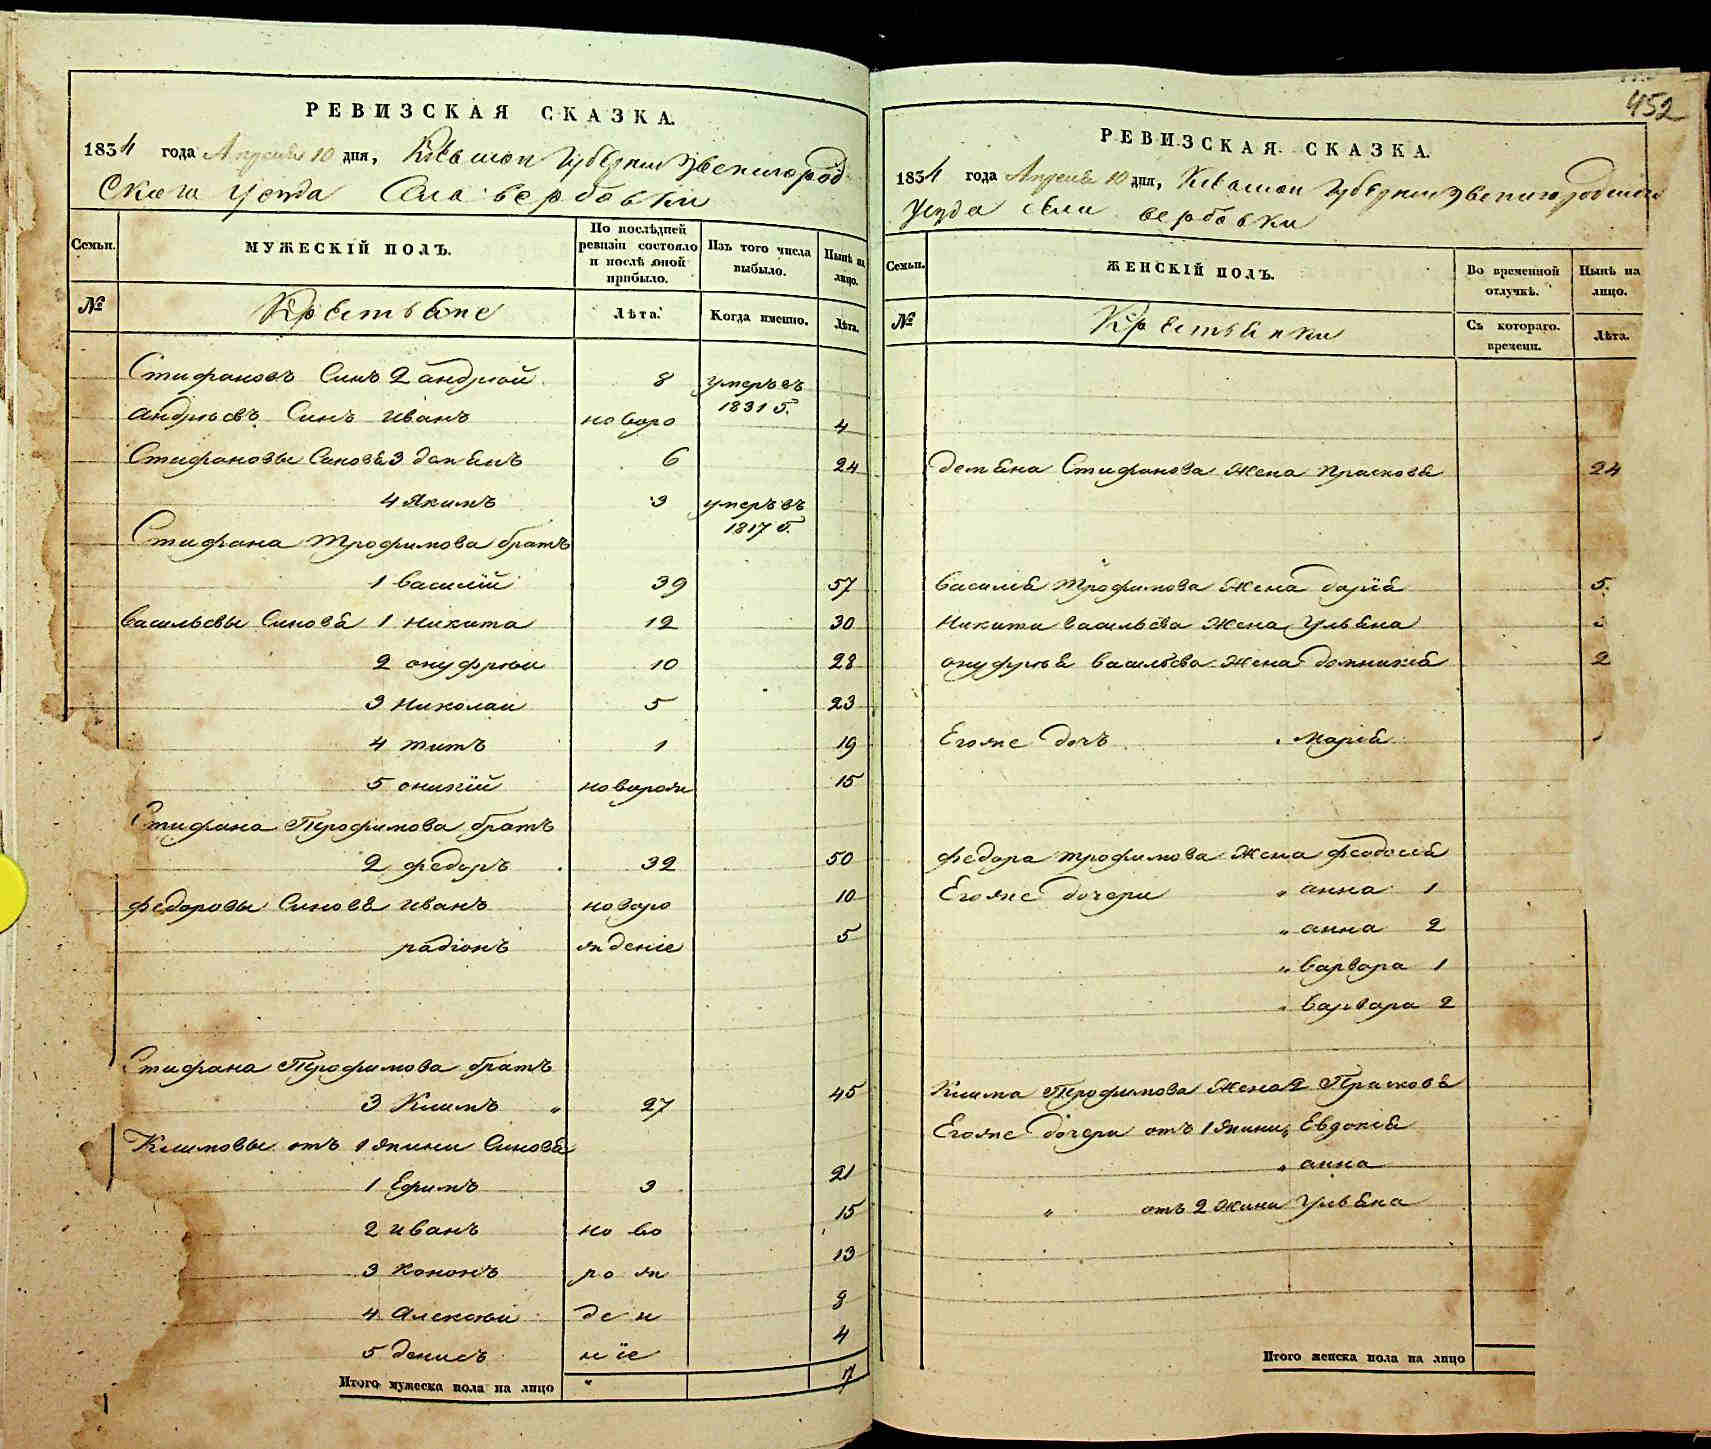 РЕВИЗСКАЯ СКАЗКА.
1834 года Апреля 10 дня, Киевской Губернии Звенигород-
Скаго Уезда Села вербовки
Семьи.
МУЖЕСКІЙ ПОЛЪ.
По послѣдней ревизіи состояло и послѣ оной прибыло.
Изъ того числа выбыло.
Нынѣ на лицо.
№
Крестьяне
Лѣта.
Когда именно.
Лѣта.
Стифановъ Синъ 2 андрюй 8 умеръ въ
1831 г.
андрѣевъ Синъ иванъ новоро 4
Стифановы Синовя 3 демянъ 6 24
4 Якимъ 3 умеръ въ
1817 г.
Стифана трофимова братъ
1 василій 39 57
васильевы Синовя 1 никита 12 30
2 онуфрюи 10 28
3 николаи 5 23
4 титъ 1 19
5 оникій новорож 15
Стифана Трофимова братъ
2 федоръ 32 50
федоровы Синовя иванъ новоро 10
радіонъ ждение 5
Стифана Трофимова братъ
3 Климъ „ 27 45
Климовы отъ 1 яжини Синовя
1 Ефимъ 3 21
2 иванъ но во 15
3 кононъ ро ж 13
4 Алексюи де н 8
5 денисъ нїе 4
Итого мужеска пола на лицо „ 7
452
РЕВИЗСКАЯ СКАЗКА.
1834 года Апреля 10 дня, Киевской Губернии Звенигородскаго
Уезда села вербовки
Семьи.
ЖЕНСКІЙ ПОЛЪ.
Во временной отлучкѣ.
Нынѣ на лицо.
№
Крестьянки
Съ котораго. времени.
Лѣта.
демяна Стифанова жена Прасковя 24
василия Трофимова жена дарія 5
Никити васильева жена Ульяна
онуфрюя васильева жена домникія 2
Егоже дочъ „ марія
федора трофимова жена феодосея
Егоже дочери „ анна 1
„ анна 2
„ варвара 1
„ варвара 2
Клима Трофимова жена 2 Прасковя
Егоже дочери отъ 1 яжини „ Евдокія
„ анна
„ отъ 2 жини Ульяна
Итого женска пола на лицо